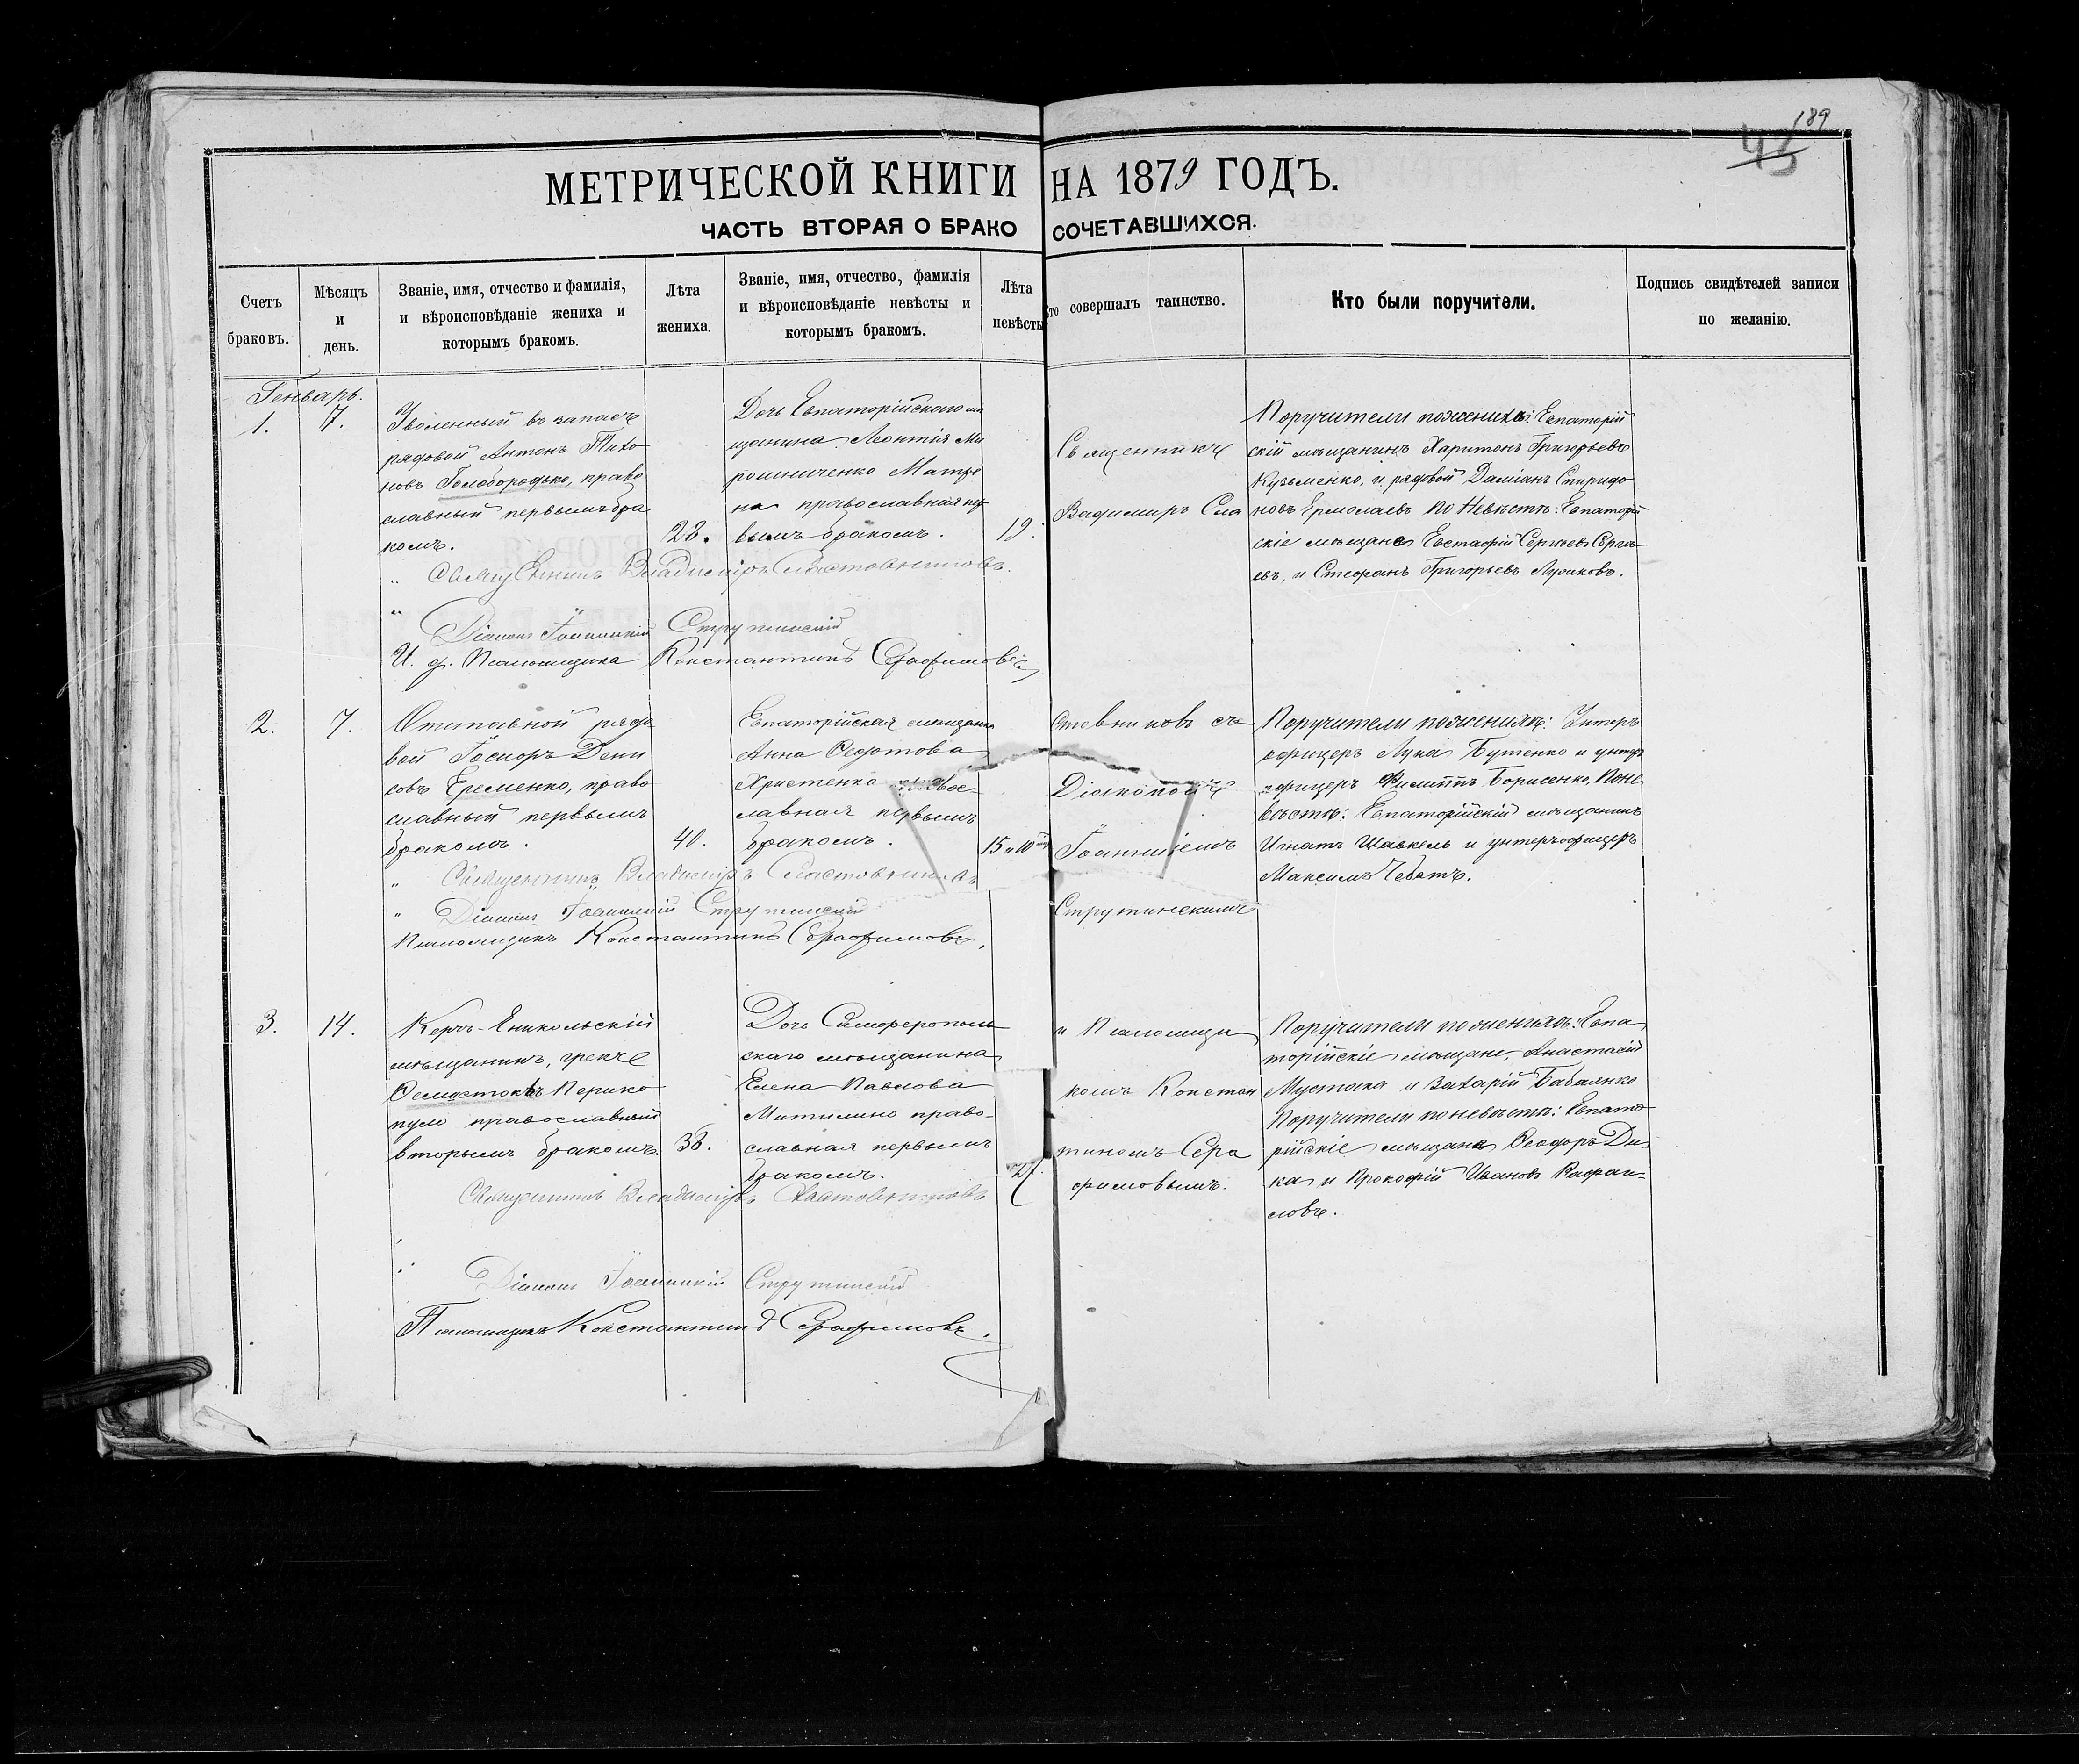 189
МЕТРИЧЕСКОЙ КНИГИ НА 1879 ГОДЪ.
ЧАСТЬ ВТОРАЯ О БРАКОСОЧЕТАВШИХСЯ.
Счетъ браковъ.
Мѣсяцъ и день.
Званіе, имя, отчество и фамилія,
и вѣроисповѣданіе жениха и
которымъ бракомъ.
Лѣта
жениха.
Званіе, имя, отчество, фамилія
и вѣроисповѣданіе невѣсты и
которымъ бракомъ.
Лѣта
невѣсты
Кто совершалъ таинство.
Кто были поручители.
Подпись свидѣтелей записи
по желанію.
Генварь.
1.
7.
Уволенный въ запасъ
рядовой Антонъ Тихо
новъ Голобородько, право
славный первымъ бра
комъ.
28.
Дочь Евпаторійскаго мѣ
щанина Леонтія Ми
рошниченко Матре
на православная пер
вымъ бракомъ.
19.
Священникъ
Владимиръ Сла
Поручители по женихѣ: Евпаторій
скій мѣщанинъ Харитонъ Григорьевъ
Кузьменко, и рядовой Даміанъ Спиридо
новъ Ермолаевъ по Невѣстѣ: Евпаторій
скіе мѣщане Евстафій Сергѣевъ Сергѣ
евъ, и Стефанъ Григорьевъ
Священникъ Владиміръ Сластовниковъ.
Діаконъ Іоанникій Струтинскій
И. д. Псаломщика Константинъ Серафимовъ
2.
7.
Отставной рядо
вой Іосифъ Дени
совъ Еременко, право
славный первымъ
бракомъ.
40.
Евпаторійская мѣщанка
Анна Федотова
Христенко правос-
лавная первымъ
бракомъ.
15 и 10
стовниковъ съ
Діакономъ
Іоанникіемъ
Струтинскимъ
Поручители по женихѣ: Унтеръ
офицеръ Лука Бутенко и унтеръ
офицеръ Филиппъ Борисенко, По не
вѣстѣ: Евпаторійскій мѣщанинъ
Игнатъ Шавкель и унтеръ офицеръ
Максимъ Чеботъ.
Священникъ Владиміръ Сластовниковъ
Діаконъ Іоанникій Струтинскій
Псаломщикъ Константинъ Серафимовъ.
3.
14.
Керчь-Еникольскій
мѣщанинъ, грекъ
Перико
пуло православный
вторымъ бракомъ.
38.
Дочь Симферополь
скаго мѣщанина
Елена Павлова
Митилино право-
славная первымъ
бракомъ.
27.
и Псаломщи
комъ Констан
тиномъ Сера
фимовымъ.
Поручители по женихѣ: Евпа
торійскіе мѣщане, Анастасій
Мустака и Захарій Бабаянко
Поручители по невѣстѣ: Евпато
рійскіе мѣщане Феодоръ Ди
ка и Прокофій Ивановъ Рафаи-
ловъ.
Священникъ Владиміръ Сластовниковъ
Діаконъ Іоанникій Струтинскій
Псаломщикъ Константинъ Серафимовъ.